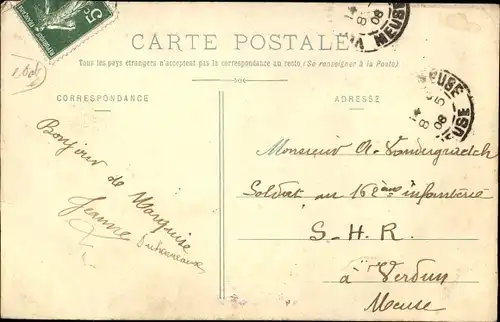 5c
MEUSE
14
8-5
08
CARTE POSTALE
Tous les pays étrangers n'acceptent pas la correspondance au recto (Se renseigner à la Poste)
CORRESPONDANCE
Bonjour de Marquise
Jeanne
ADRESSE
MEUSE
14
8-5
08
MEUSE
Monsieur A.
Soldat au 162ème infanterie
S-H-R.
à Verdun
Meuse